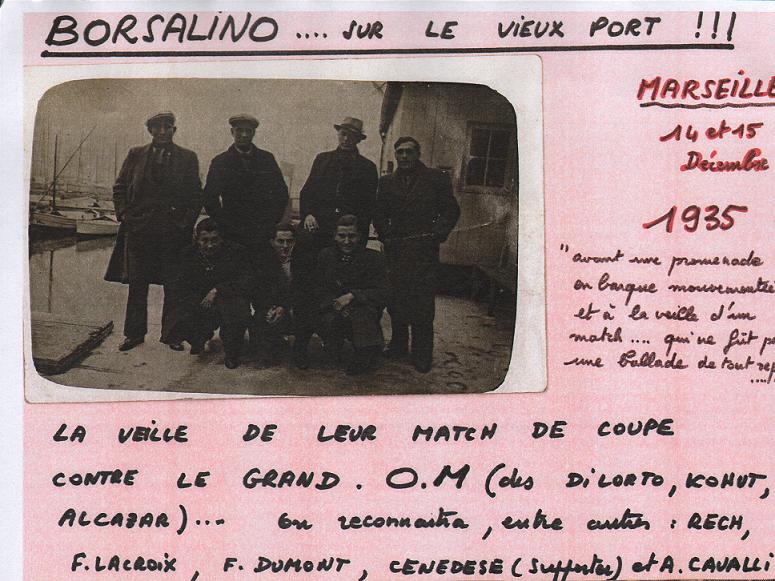 BORSALINO .... SUR LE VIEUX PORT !!!
MARSEILLE
14 et 15
Décembre
1935
"avant une promenade
en barque mouvementée
et à la veille d'un
match .... qui ne fût p
une ballade de tout rep
....
LA VEILLE DE LEUR MATCH DE COUPE
CONTRE LE GRAND . O.M (des DiLORTO, KOHUT,
ALCAZAR)... On reconnaitra, entre autres : RECH,
F. LACROIX, F. DUMONT, CENEDESE (Supporter) et A. CAVALLI